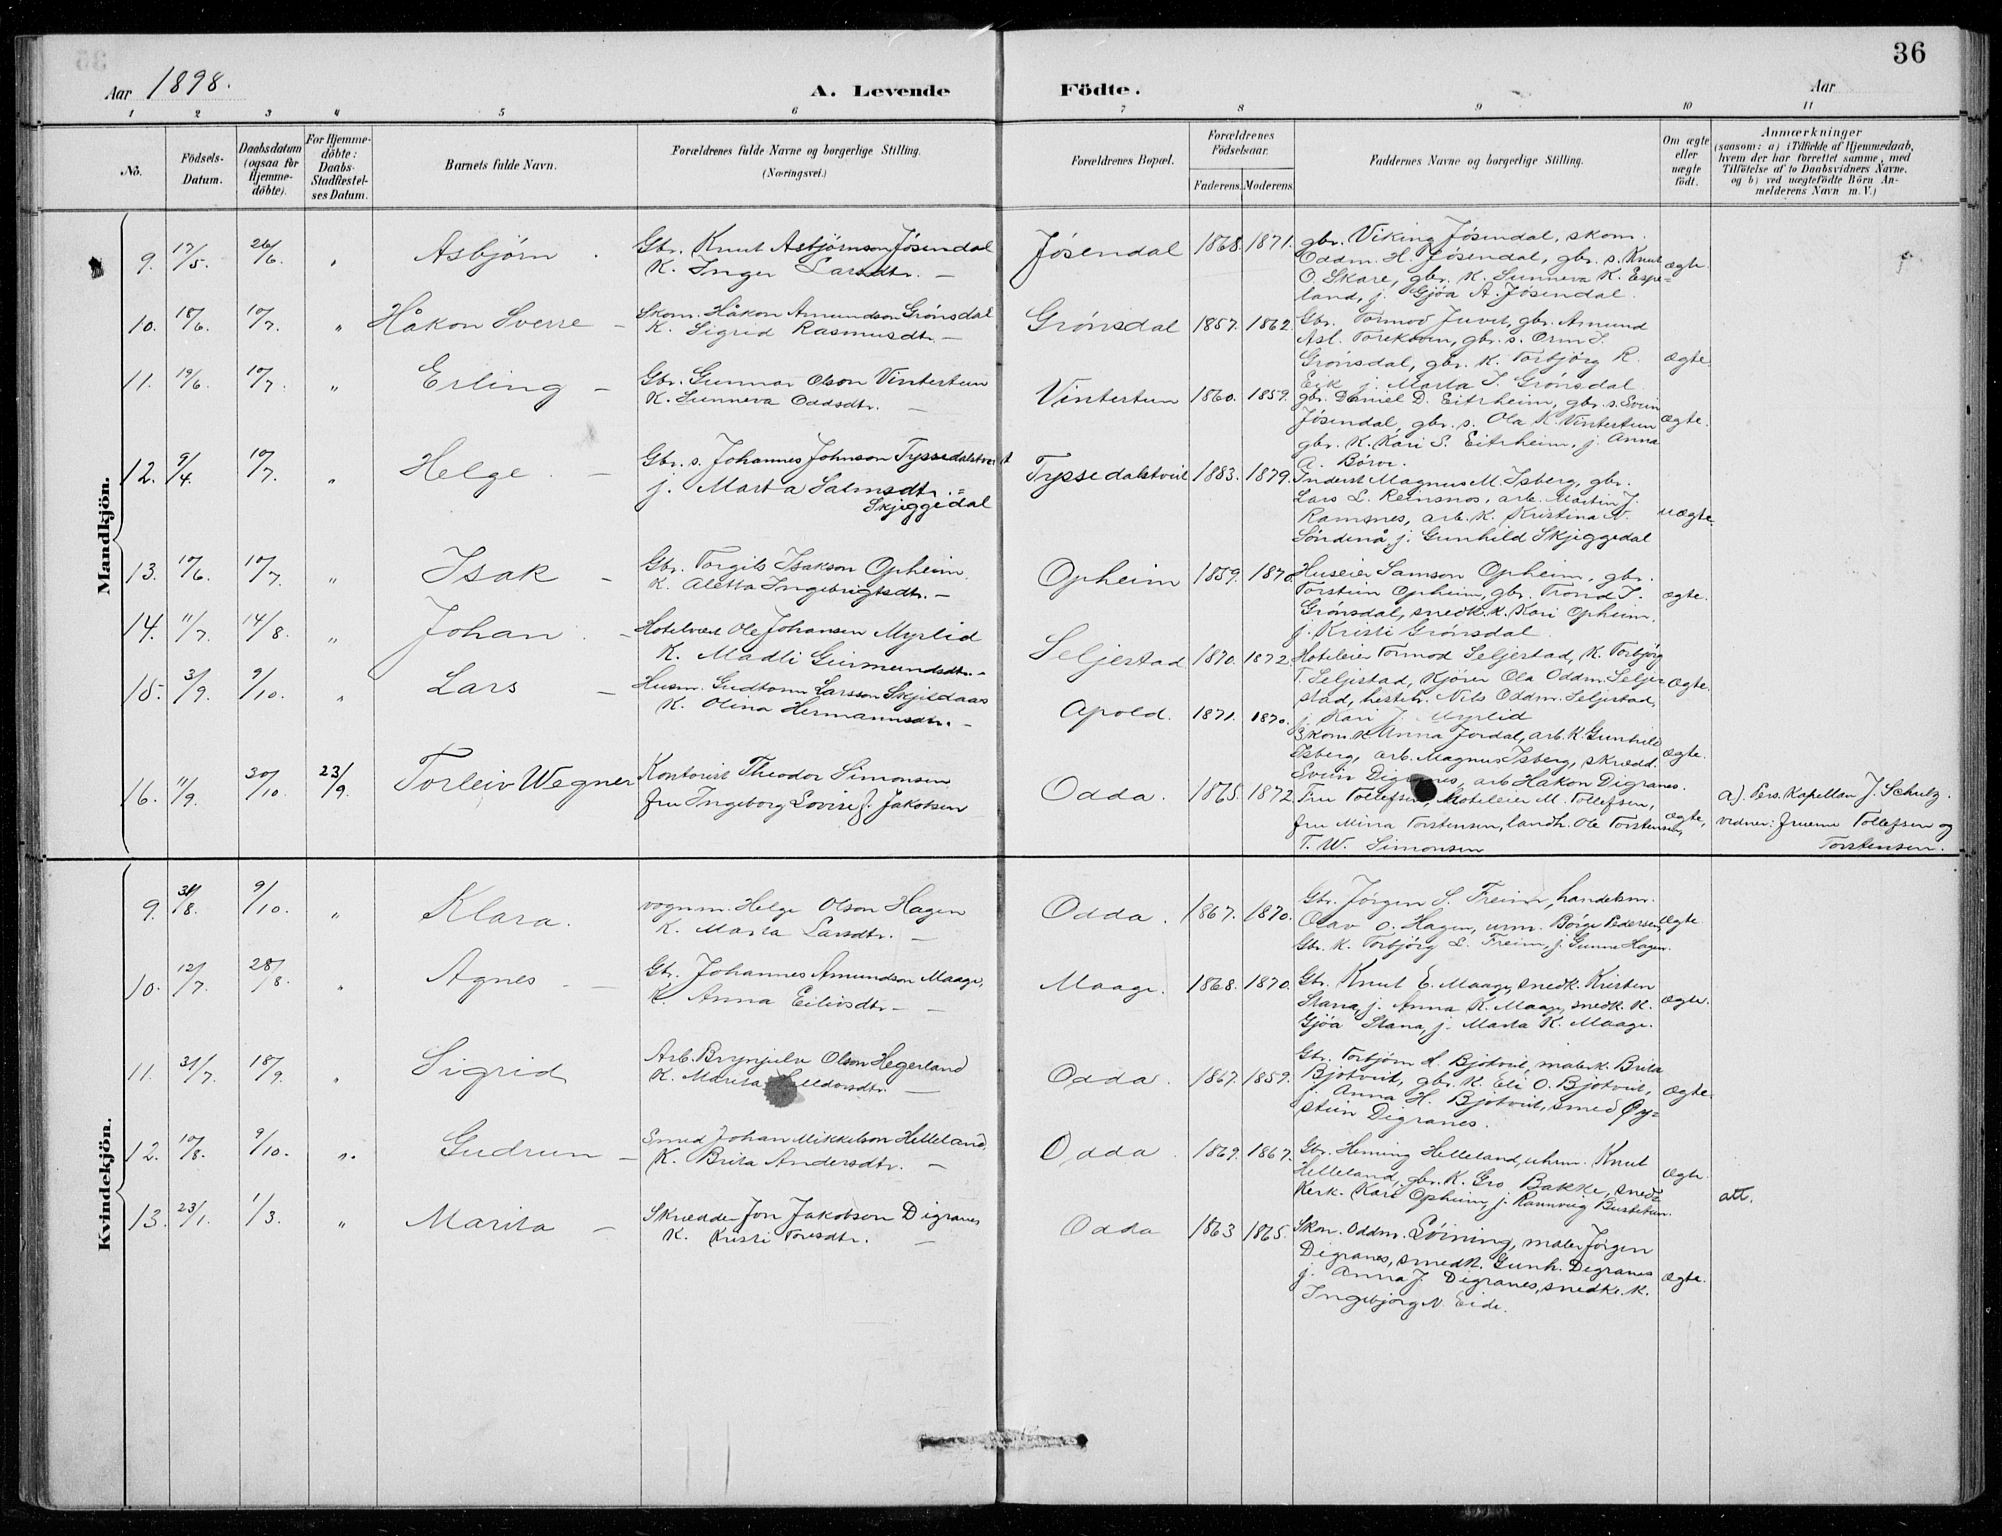 36
Aar 1898.
A. Levende Födte.
Aar
1 2 3 4 5 6 7 8 9 10 11
No.
Födsels-Datum.
Daabsdatum (ogsaa for Hjemme-döbte).
For Hjemme-döbte: Daabs-Stadfæstel-ses Datum.
Barnets fulde Navn.
Forældrenes fulde Navne og borgerlige Stilling.
(Næringsvei.)
Forældrenes Bopæl.
Forældrenes Födselsaar.
Faderens. Moderens.
Faddernes Navne og borgerlige Stilling.
Om ægte eller uægte födt.
Anmærkninger
(saasom: a) i Tilfælde af Hjemmedaab,
hvem der har forrettet samme, med
Tilföielse af to Daabsvidners Navne,
og b) ved uægtefödte Börn An-
melderens Navn m. V.)
Mandkjön.
9. 17/5. 26/6. " Asbjørn.
Gbr. Knut Asbjørnson Jösendal
K. Inger Larsdtr. —
Jösendal 1868. 1871.
gbr. Viking Jösendal, skom.
Oddm. H. Jösendal, gbr. s. Knut
O. Skare, gbr. K. Sunneva K. Espe-
land, j. Gjöa A. Jösendal.
ægte.
10. 18/6. 10/7. " Håkon Sverre —
Skom. Håkon Amundson Grönsdal
K. Sigrid Rasmusdtr. —
Grönsdal 1857. 1862.
Gbr. Tormod Juvet, gbr. Amund
Asl. Torekoven, gbr. s. Orm S.
Grönsdal, gbr. K. Torbjörg R.
Eik j. Marta T. Grönsdal.
ægte.
11. 19/6. 10/7. " Erling —
Gbr. Gunnar Olson Vintertun
K. Sunneva Oddsdtr. —
Vintertun 1860. 1859.
gbr. Daniel D. Eitrheim, gbr. s. Svein
Jösendal, gbr. s. Ola K. Vintertun
gbr. K. Kari S. Eitrheim, j. Anna
A. Börve.
ægte.
12. 9/4. 10/7. " Helge. —
Gbr. s. Johannes Johnson Tyssedalstveit
j. Marta Salmsdtr. =
Skjeggedal
Tyssedalstveit 1883. 1879.
Inderst Magnus M. Isberg, gbr.
Lars L. Reinsnos, arb. Martin J.
Ramsnes, arb. K. Kristina N.
Söndenå j. Gunhild Skjeggedal
uægte.
13. 10/6. 10/7. " Isak —
Gbr. Torgils Isakson Opheim.
K. Aletta Ingebrigtsdtr. —
Opheim 1859. 1870.
Huseier Samson Opheim, gbr.
Torstein Opheim, gbr. Trond T.
Grönsdal, snedk. K. Kari Opheim,
j. Kristi Grönsdal
ægte.
14. 11/7. 14/8. " Johan. —
Hotelvært Ole Johansen Myrlid
K. Madli Guimundsdtr. —
Seljestad 1870. 1872.
Hoteleier Tormod Seljestad, K. Torbjörg
T. Seljestad, Kjörer Ola Oddm. Selje-
stad, Nils Oddm. Seljestad,
j. Kari J. Myrlid
ægte.
15. 3/9. 9/10. " Lars —
Husm. Gudtorm Larsson Skjeldaas
K. Olina Hermannsdtr. —
Apold. 1871. 1870.
Skom. K. Anna Jordal, arb. K. Gunhild
Isberg, arb. Magnus Isberg, skrædd.
Svein Digranes, arb. Håkon Digranes.
ægte.
16. 11/9. 30/10. 23/9. Torleiv Wegner
Kontorist Theodor Simonsen
fru Ingeborg Lovise f. Jakobsen
Odda. 1865. 1872.
Fru Tollefsen, Hoteleier M. Tollefsen,
fru Mina Torstensen, landh. Ole Torstensen,
T. W. Simonsen
ægte,
a). Pers. Kapellan J. Schulz.
vidner: fruerne Tollefsen og
Torstensen.
Kvindekjön.
9. 31/8. 9/10. " Klara.
vognm. Helge Olson Hagen
K. Marta Larsdtr. —
Odda. 1867. 1870.
Gbr. Jörgen S. Freim, handelsm.
Olav O. Hagen, urm. Börge Pedersen,
Gbr. K. Torbjörg L. Freim, j. Gunne Hagen.
ægte
10. 12/7. 28/8. " Agnes —
Gbr. Johannes Amundson Maage,
K. Anna Eilivsdtr. —
Maage. 1868. 1870.
Gbr. Knut E. Maage, snedk. Kristen
Stana, j. Anna K. Maage, snedk. K.
Gjöa Stana, j. Marta K. Maage.
ægte.
11. 31/7. 18/9. " Sigrid
Arb. Brynjulv Olson Hegerland
K. Marita
Odda. 1867. 1859.
Gbr. Torbjörn H. Bjotveit, maler K. Brita
Bjotveit, gbr. K. Eli O. Bjotveit,
j. Anna H. Bjotveit, smed Öy-
stein Digranes.
ægte.
12. 10/8. 9/10. " Gudrun —
Smed Johan Mikkelson Helleland,
K. Brita Andersdtr. —
Odda. 1869. 1867.
Gbr. Heming Helleland, uhrm. Knut
Helleland, gbr. K. Gro Bakke, snedk-
Kerk. Kari Opheim, j. Rannveig Bustetun.
ægte.
13. 23/1. 1/3. " Marita —
Skrædder Jon Jakobson Digranes
K. Kristi Toresdtr. —
Odda 1863 1865.
Skom. Oddm. Löining, maler Jörgen
Digranes, smedk. Gunh. Digranes
j. Anna J. Digranes, snedk. K.
Ingebjörg N. Eide.
ægte.
att.